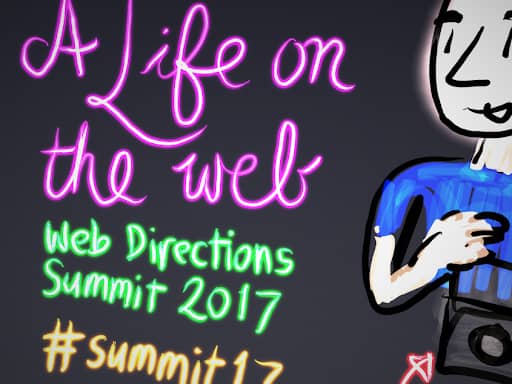 A Life on
the web
Web Directions
Summit 2017
#summit17